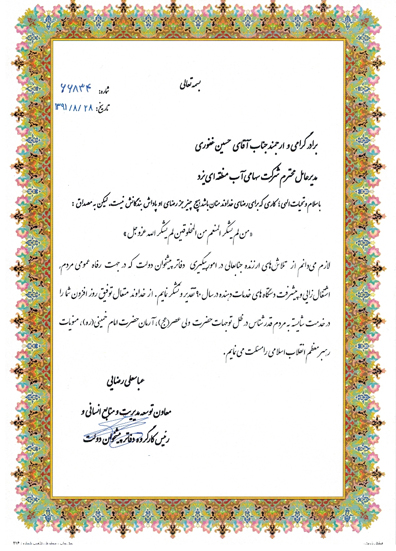 بسمه تعالی
شماره: ۶۶۸۳۴
تاریخ: ۱۳۹۱/۸/۲۸
برادر گرامی و ارجمند جناب آقای حسین غفوری
مدیرعامل محترم شرکت سهامی آب منطقه ای یزد
با سلام و تحیات الهی؛ کاری که برای رضای خداوند منان باشد هیچ چیز جز رضای او پاداش بندگانش نیست، لیکن به مصداق:
«من لم یشکر المنعم من المخلوقین لم یشکر الله عز و جل»
لازم می دانم از تلاش های ارزنده جنابعالی در امور پیگیری دفاتر پیشخوان دولت که در جهت رفاه عمومی مردم،
اشتغال زایی و پیشرفت دستگاه های خدمات دهنده در سال ۹۰ تقدیر و تشکر نمایم. از خداوند متعال توفیق روز افزون شما را
در خدمت شایسته به مردم قدرشناس در ظل توجهات حضرت ولی عصر(عج)، آرمان حضرت امام خمینی(ره)، منویات
رهبر معظم انقلاب اسلامی را مسئلت می نمایم.
عباسعلی رضایی
معاون توسعه مدیریت و منابع انسانی و
رئیس کارگروه دفاتر پیشخوان دولت